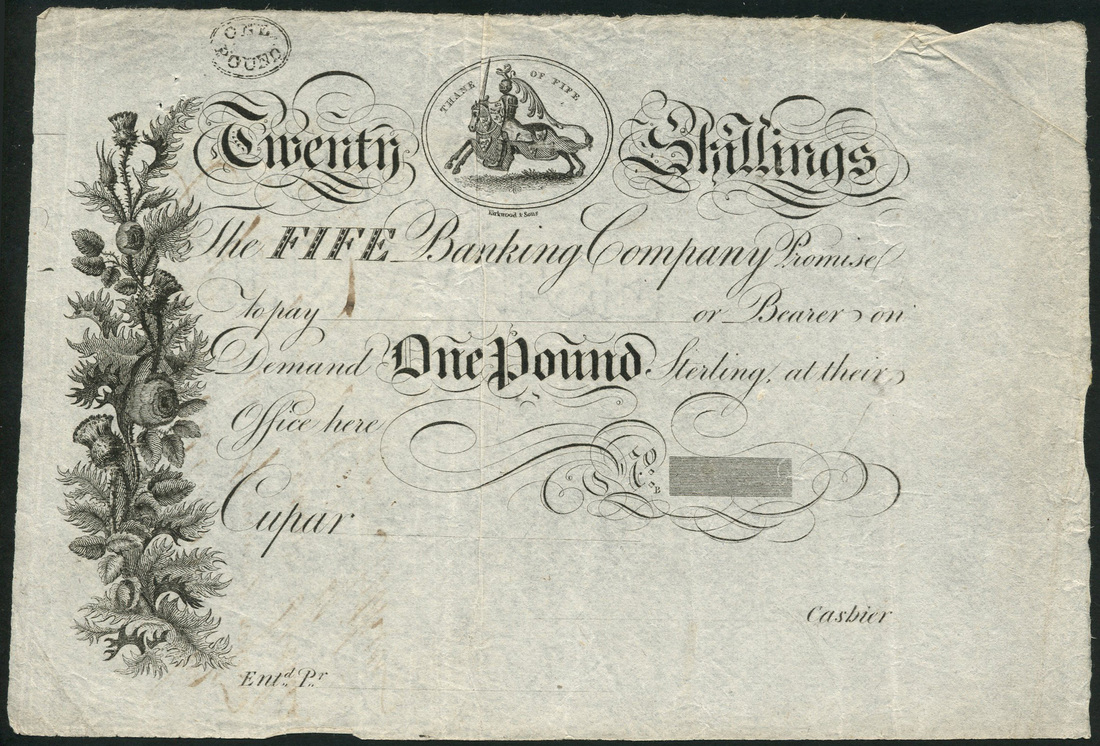 ONE
POUND
THANE OF FIFE
Twenty Shillings
Kirkwood & Sons
The FIFE Banking Company Promise
to pay or Bearer on
Demand One Pound Sterling, at their
Office here
Cupar
Cashier
Entd. Pr.